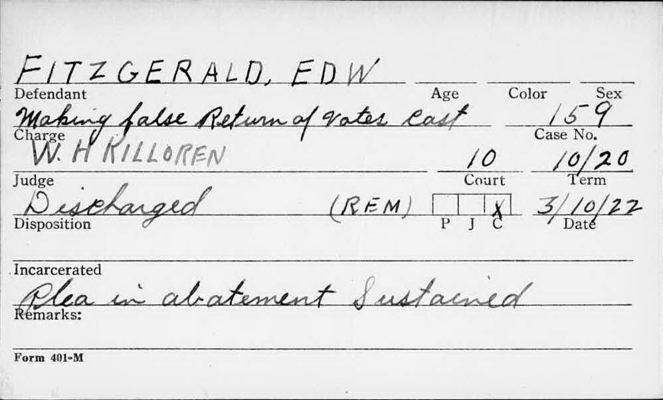 FITZGERALD, EDW
Defendant Age Color Sex
Making false Return of Votes Cast 159
Charge Case No.
W. H KILLOREN 10 10/20
Judge Court Term
Discharged (REM) X 3/10/22
Disposition P J C Date
Incarcerated
Plea in abatement Sustained
Remarks:
Form 401-M